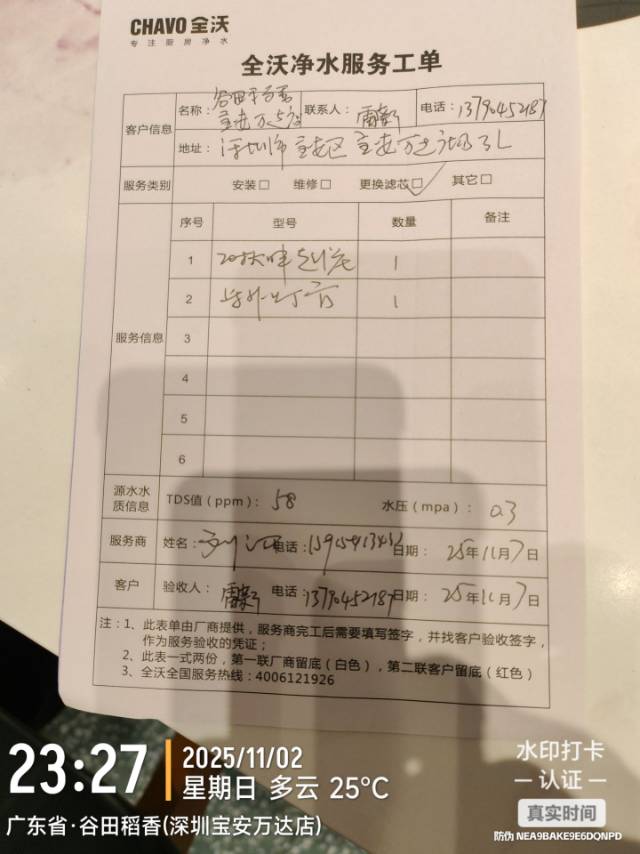 CHAVO 全沃
专注厨房净水
全沃净水服务工单
客户信息
名称：谷田稻香宝安万达店 联系人： 电话：13790452187
地址：深圳市宝安区宝安万达广场3L
服务类别 安装□ 维修□ 更换滤芯□✓ 其它□
服务信息
序号 型号 数量 备注
1 1
2 紫外灯 1
3
4
5
6
源水水质信息 TDS值（ppm）：58 水压（mpa）：0.3
服务商 姓名： 电话： 日期：25年11月7日
客户 验收人： 电话：13790452187 日期：25年11月7日
注：1、此表单由厂商提供，服务商完工后需要填写签字，并找客户验收签字，
作为服务验收的凭证；
2、此表一式两份，第一联厂商留底（白色），第二联客户留底（红色）
3、全沃全国服务热线：4006121926
23:27
2025/11/02
星期日 多云 25°C
广东省·谷田稻香(深圳宝安万达店)
水印打卡
认证
真实时间
防伪 NEA9BAKE9E6DQNPD